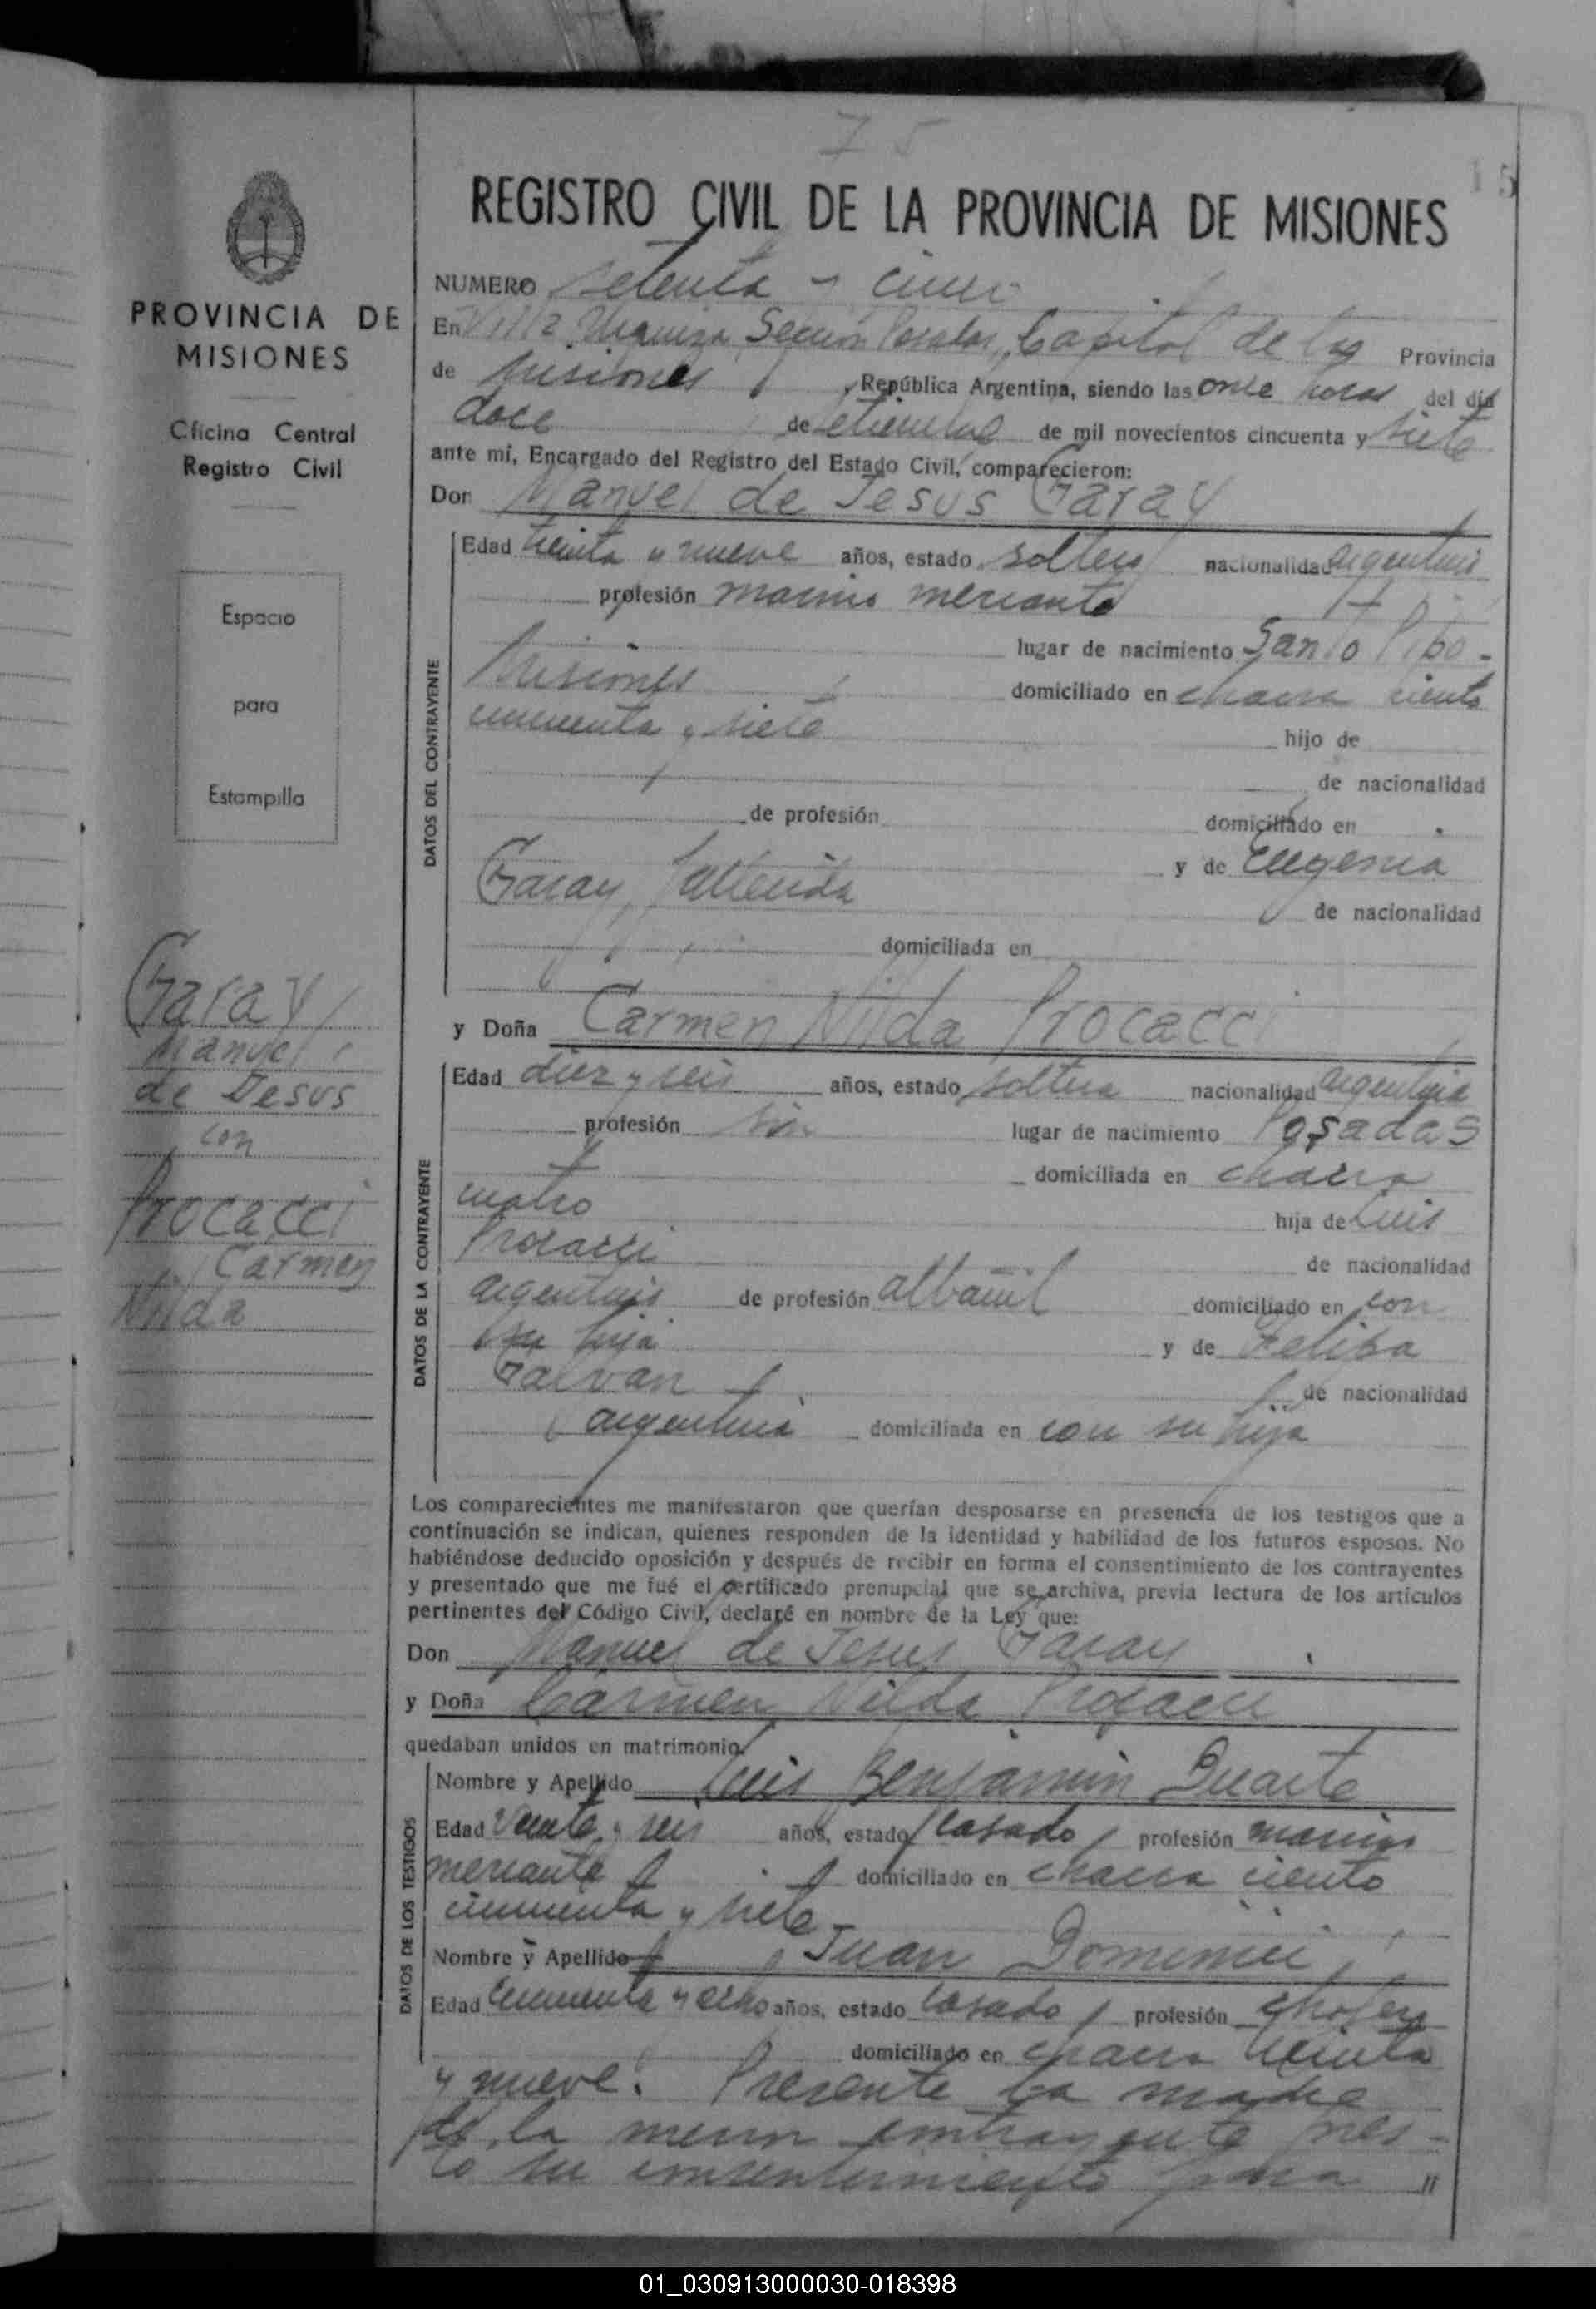 75
15
REGISTRO CIVIL DE LA PROVINCIA DE MISIONES
PROVINCIA DE
MISIONES
Oficina Central
Registro Civil
Espacio
para
Estampilla
Garay
Manuel
de Jesus
con
Procacci
Carmen
Nilda
NUMERO setenta y cinco
En Villa Urquiza, Sección Posadas, Capital de la Provincia
de Misiones, República Argentina, siendo las once horas del día
doce de setiembre de mil novecientos cincuenta y siete
ante mí, Encargado del Registro del Estado Civil, comparecieron:
Don Manuel de Jesus Garay
DATOS DEL CONTRAYENTE
Edad treinta y nueve años, estado soltero nacionalidad argentino
profesión marino mercante
lugar de nacimiento Santo Pipo-
Misiones domiciliado en chacra ciento
cincuenta y siete hijo de
de nacionalidad
de profesión domiciliado en
y de Eugenia
Garay, fallecida de nacionalidad
domiciliada en
y Doña Carmen Nilda Procacci
DATOS DE LA CONTRAYENTE
Edad diez y seis años, estado soltera nacionalidad argentina
profesión sin lugar de nacimiento Posadas
domiciliada en chacra
cuatro hija de Luis
Procacci de nacionalidad
argentino de profesión albañil domiciliado en con
su hija y de Felipa
Galvan de nacionalidad
argentina domiciliada en con su hija
Los comparecientes me manifestaron que querían desposarse en presencia de los testigos que a
continuación se indican, quienes responden de la identidad y habilidad de los futuros esposos. No
habiéndose deducido oposición y después de recibir en forma el consentimiento de los contrayentes
y presentado que me fué el certificado prenupcial que se archiva, previa lectura de los artículos
pertinentes del Código Civil, declaré en nombre de la Ley que:
Don Manuel de Jesus Garay
y Doña Carmen Nilda Procacci
quedaban unidos en matrimonio
DATOS DE LOS TESTIGOS
Nombre y Apellido Luis Benjamin Duarte
Edad veinte y seis años, estado casado profesión marino
mercante domiciliado en chacra ciento
cincuenta y siete-
Nombre y Apellido Juan Dominici
Edad cincuenta y ocho años, estado casado profesión chofer
domiciliado en chacra treinta
y nueve. Presente la madre
de la menor contrayente pres-
tó su consentimiento para "
01_030913000030-018398